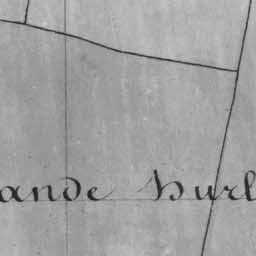 ande Hurl